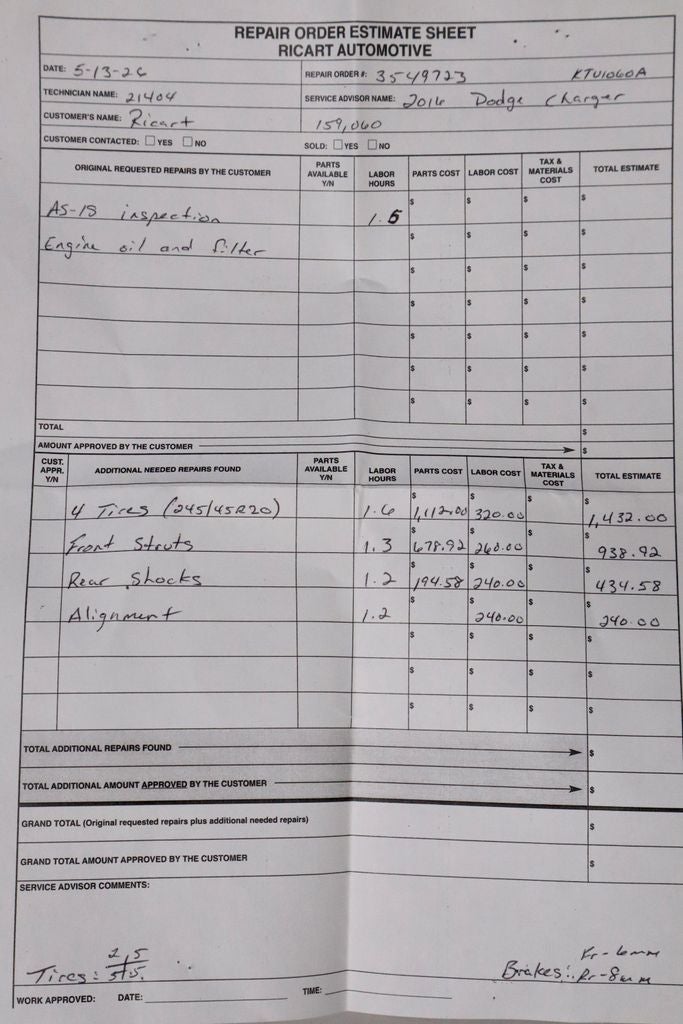 REPAIR ORDER ESTIMATE SHEET
RICART AUTOMOTIVE
DATE: 5-13-26
REPAIR ORDER #: 3549723 KTU1060A
TECHNICIAN NAME: 21404
SERVICE ADVISOR NAME: 2016 Dodge Charger
CUSTOMER'S NAME: Ricart
159,060
CUSTOMER CONTACTED: ☐ YES ☐ NO
SOLD: ☐ YES ☐ NO
ORIGINAL REQUESTED REPAIRS BY THE CUSTOMER PARTS AVAILABLE Y/N LABOR HOURS PARTS COST LABOR COST TAX & MATERIALS COST TOTAL ESTIMATE
AS-IS inspection 1.5 $ $ $ $
Engine oil and filter $ $ $ $
$ $ $ $
$ $ $ $
$ $ $ $
$ $ $ $
$ $ $ $
TOTAL $
AMOUNT APPROVED BY THE CUSTOMER $
CUST. APPR. Y/N ADDITIONAL NEEDED REPAIRS FOUND PARTS AVAILABLE Y/N LABOR HOURS PARTS COST LABOR COST TAX & MATERIALS COST TOTAL ESTIMATE
4 Tires (245/45R20) 1.6 $ 1,112.00 $ 320.00 $ $ 1,432.00
Front Struts 1.3 $ 678.92 $ 260.00 $ $ 938.92
Rear Shocks 1.2 $ 194.58 $ 240.00 $ $ 434.58
Alignment 1.2 $ $ 240.00 $ $ 240.00
$ $ $ $
$ $ $ $
$ $ $ $
TOTAL ADDITIONAL REPAIRS FOUND $
TOTAL ADDITIONAL AMOUNT APPROVED BY THE CUSTOMER $
GRAND TOTAL (Original requested repairs plus additional needed repairs) $
GRAND TOTAL AMOUNT APPROVED BY THE CUSTOMER $
SERVICE ADVISOR COMMENTS:
2 5
Tires: 5 5
Fr-6mm
Brakes: Rr-8mm
WORK APPROVED: DATE: TIME: